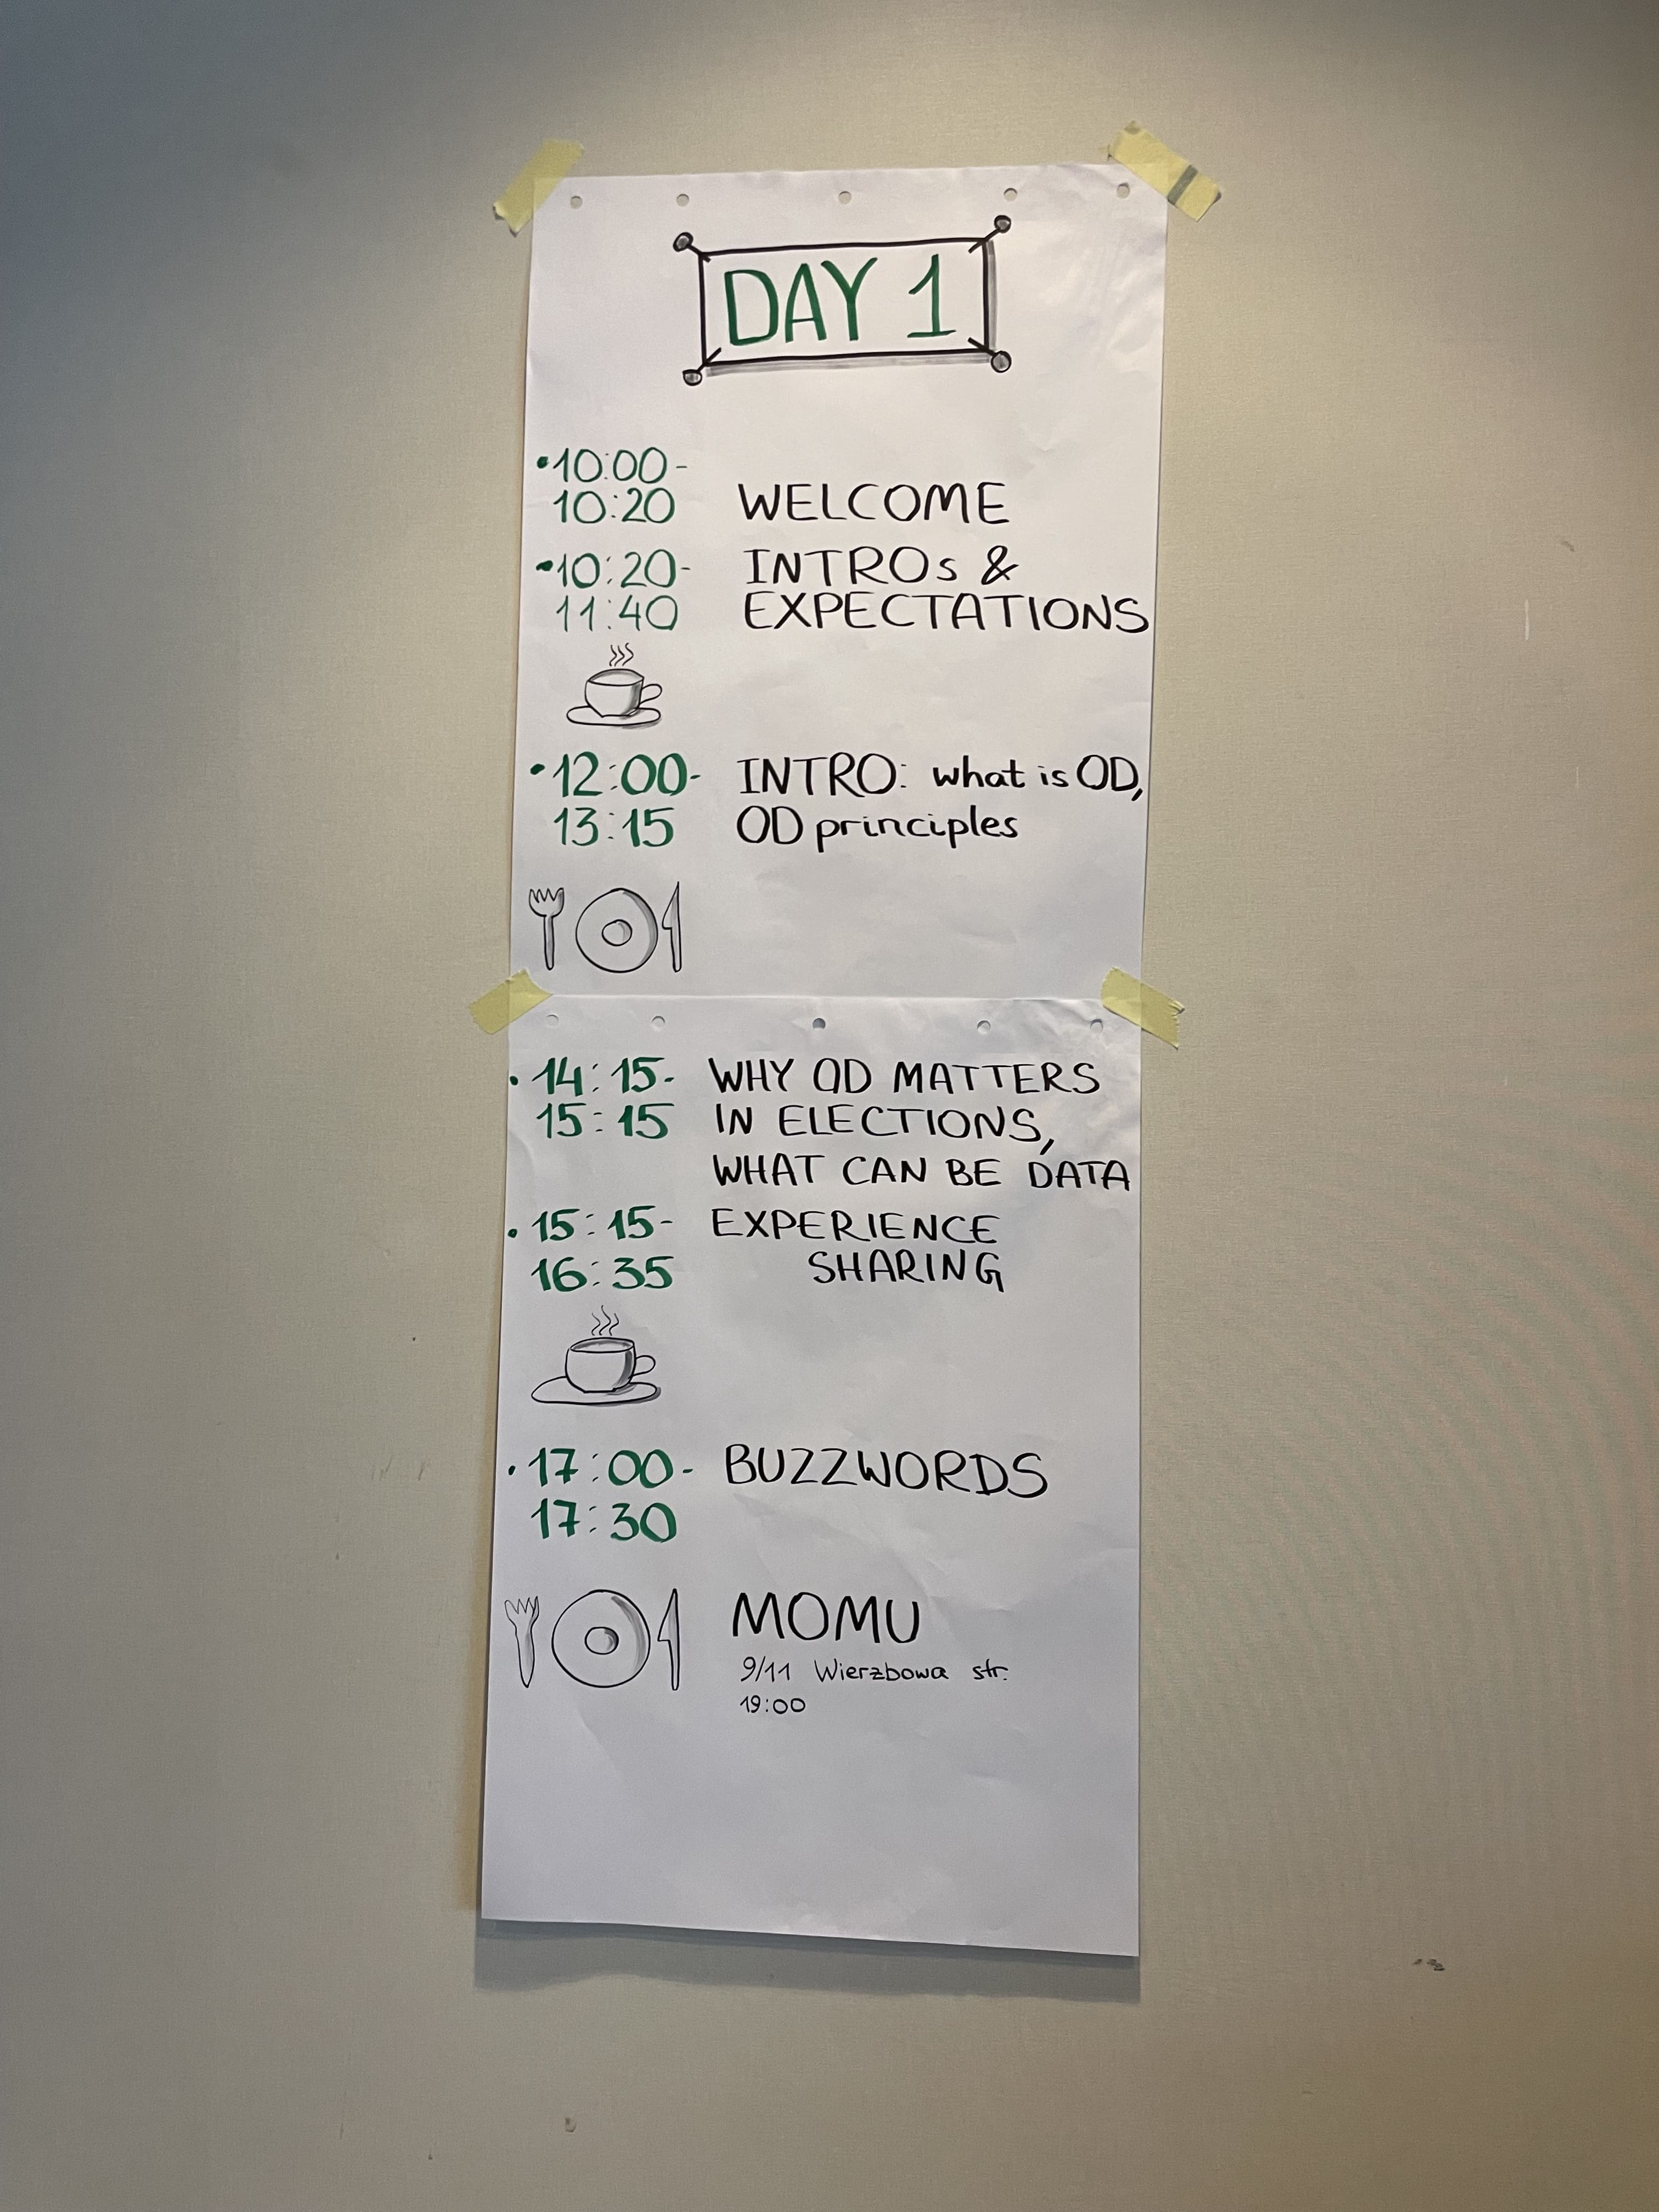 DAY 1
•10:00-
10:20 WELCOME
•10:20- INTROs &
11:40 EXPECTATIONS
•12:00- INTRO: what is OD,
13:15 OD principles
•14:15- WHY OD MATTERS
15:15 IN ELECTIONS,
WHAT CAN BE DATA
•15:15- EXPERIENCE
16:35 SHARING
•17:00- BUZZWORDS
17:30
MOMU
9/11 Wierzbowa str.
19:00